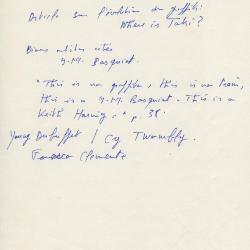 Article sur l'évolution du graffiti:
Where is Taki?
Biens utiles cités
J.M. Basquiat.
"This is no graffiti, this is no train,
this is a J.M. Basquiat. This is a
Keith Haring." p. 38
Young Dubuffet / Cy Twombly.
Francesco Clemente